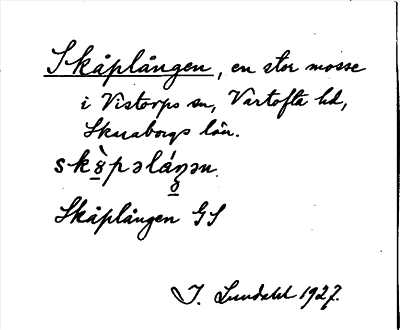 Skåplången, en stor mosse
i Vistorps sn, Vartofta hd,
Skaraborgs län.
Skåplången GS
I. Lundahl 1927.